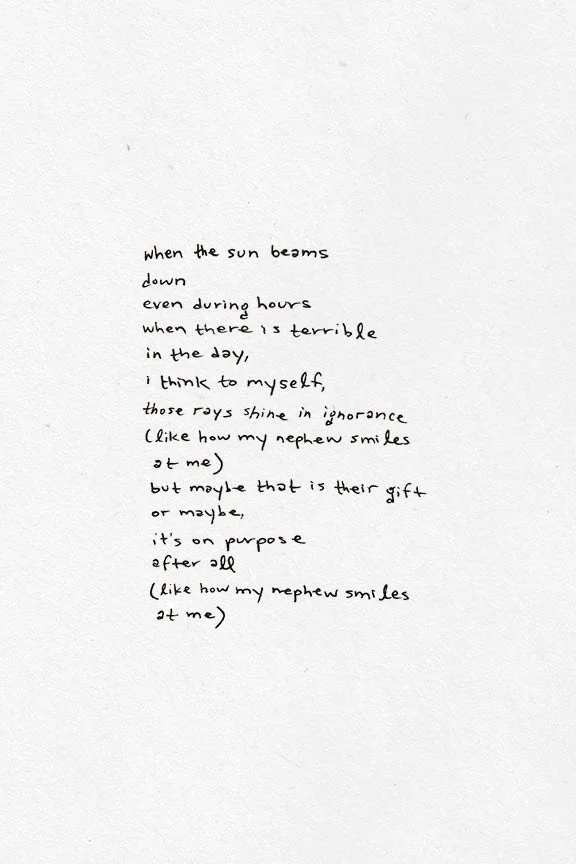 when the sun beams
down
even during hours
when there is terrible
in the day,
i think to myself,
those rays shine in ignorance
(like how my nephew smiles
at me)
but maybe that is their gift
or maybe,
it's on purpose
after all
(like how my nephew smiles
at me)